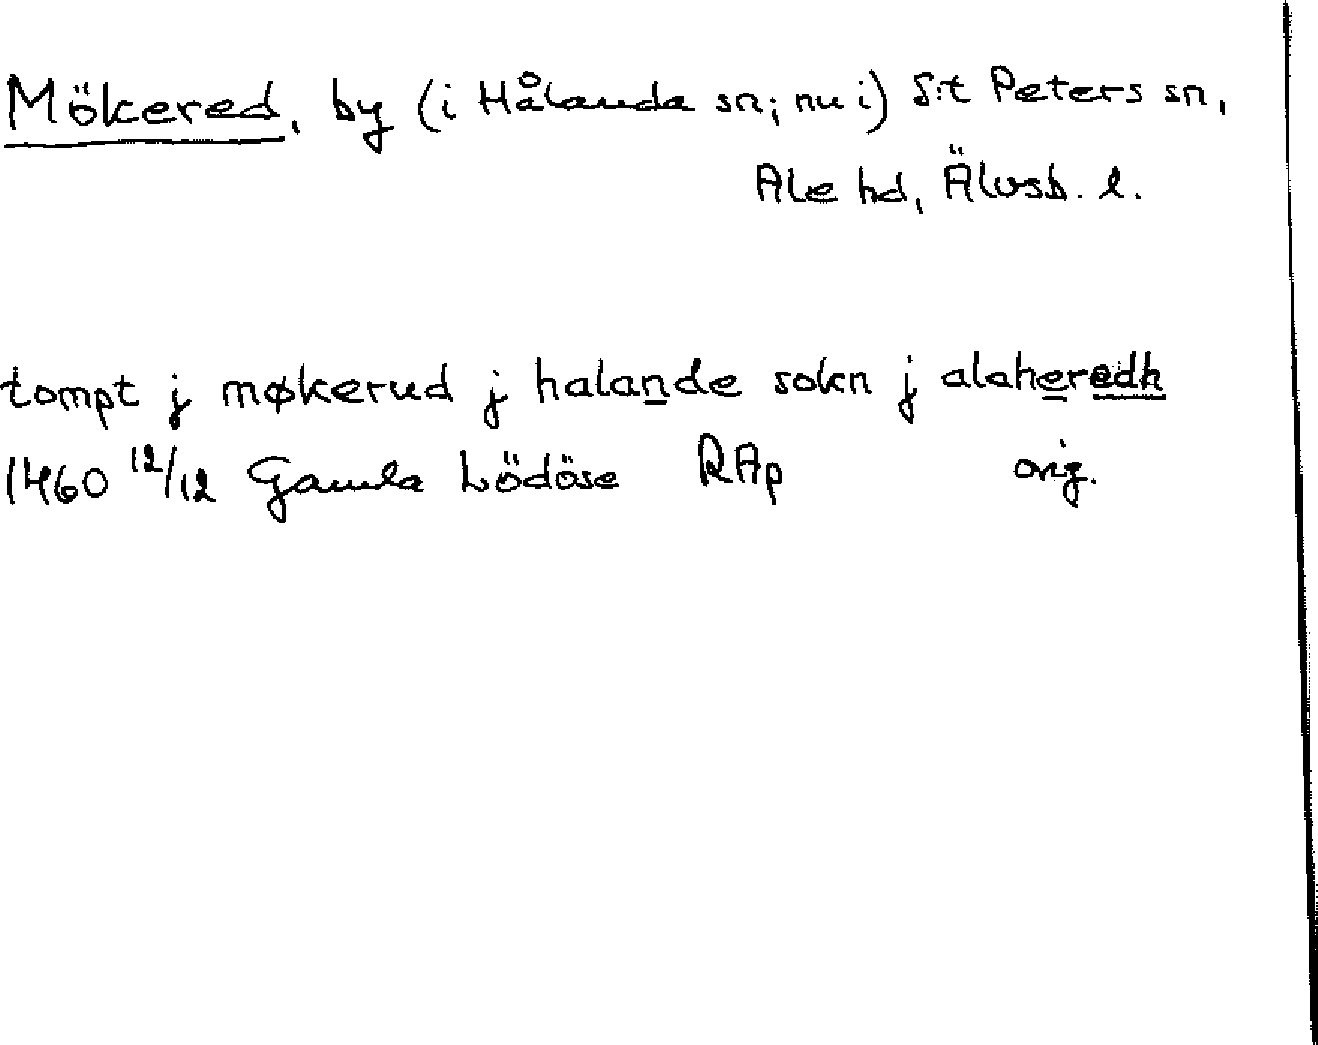 Mökered, by (i Hålanda sn; nu i) S:t Peters sn,
Ale hd, Älvsb. l.
tompt j møkerud j halande sokn j alaheredh
1460 12/12 Gamla Lödöse RAp orig.